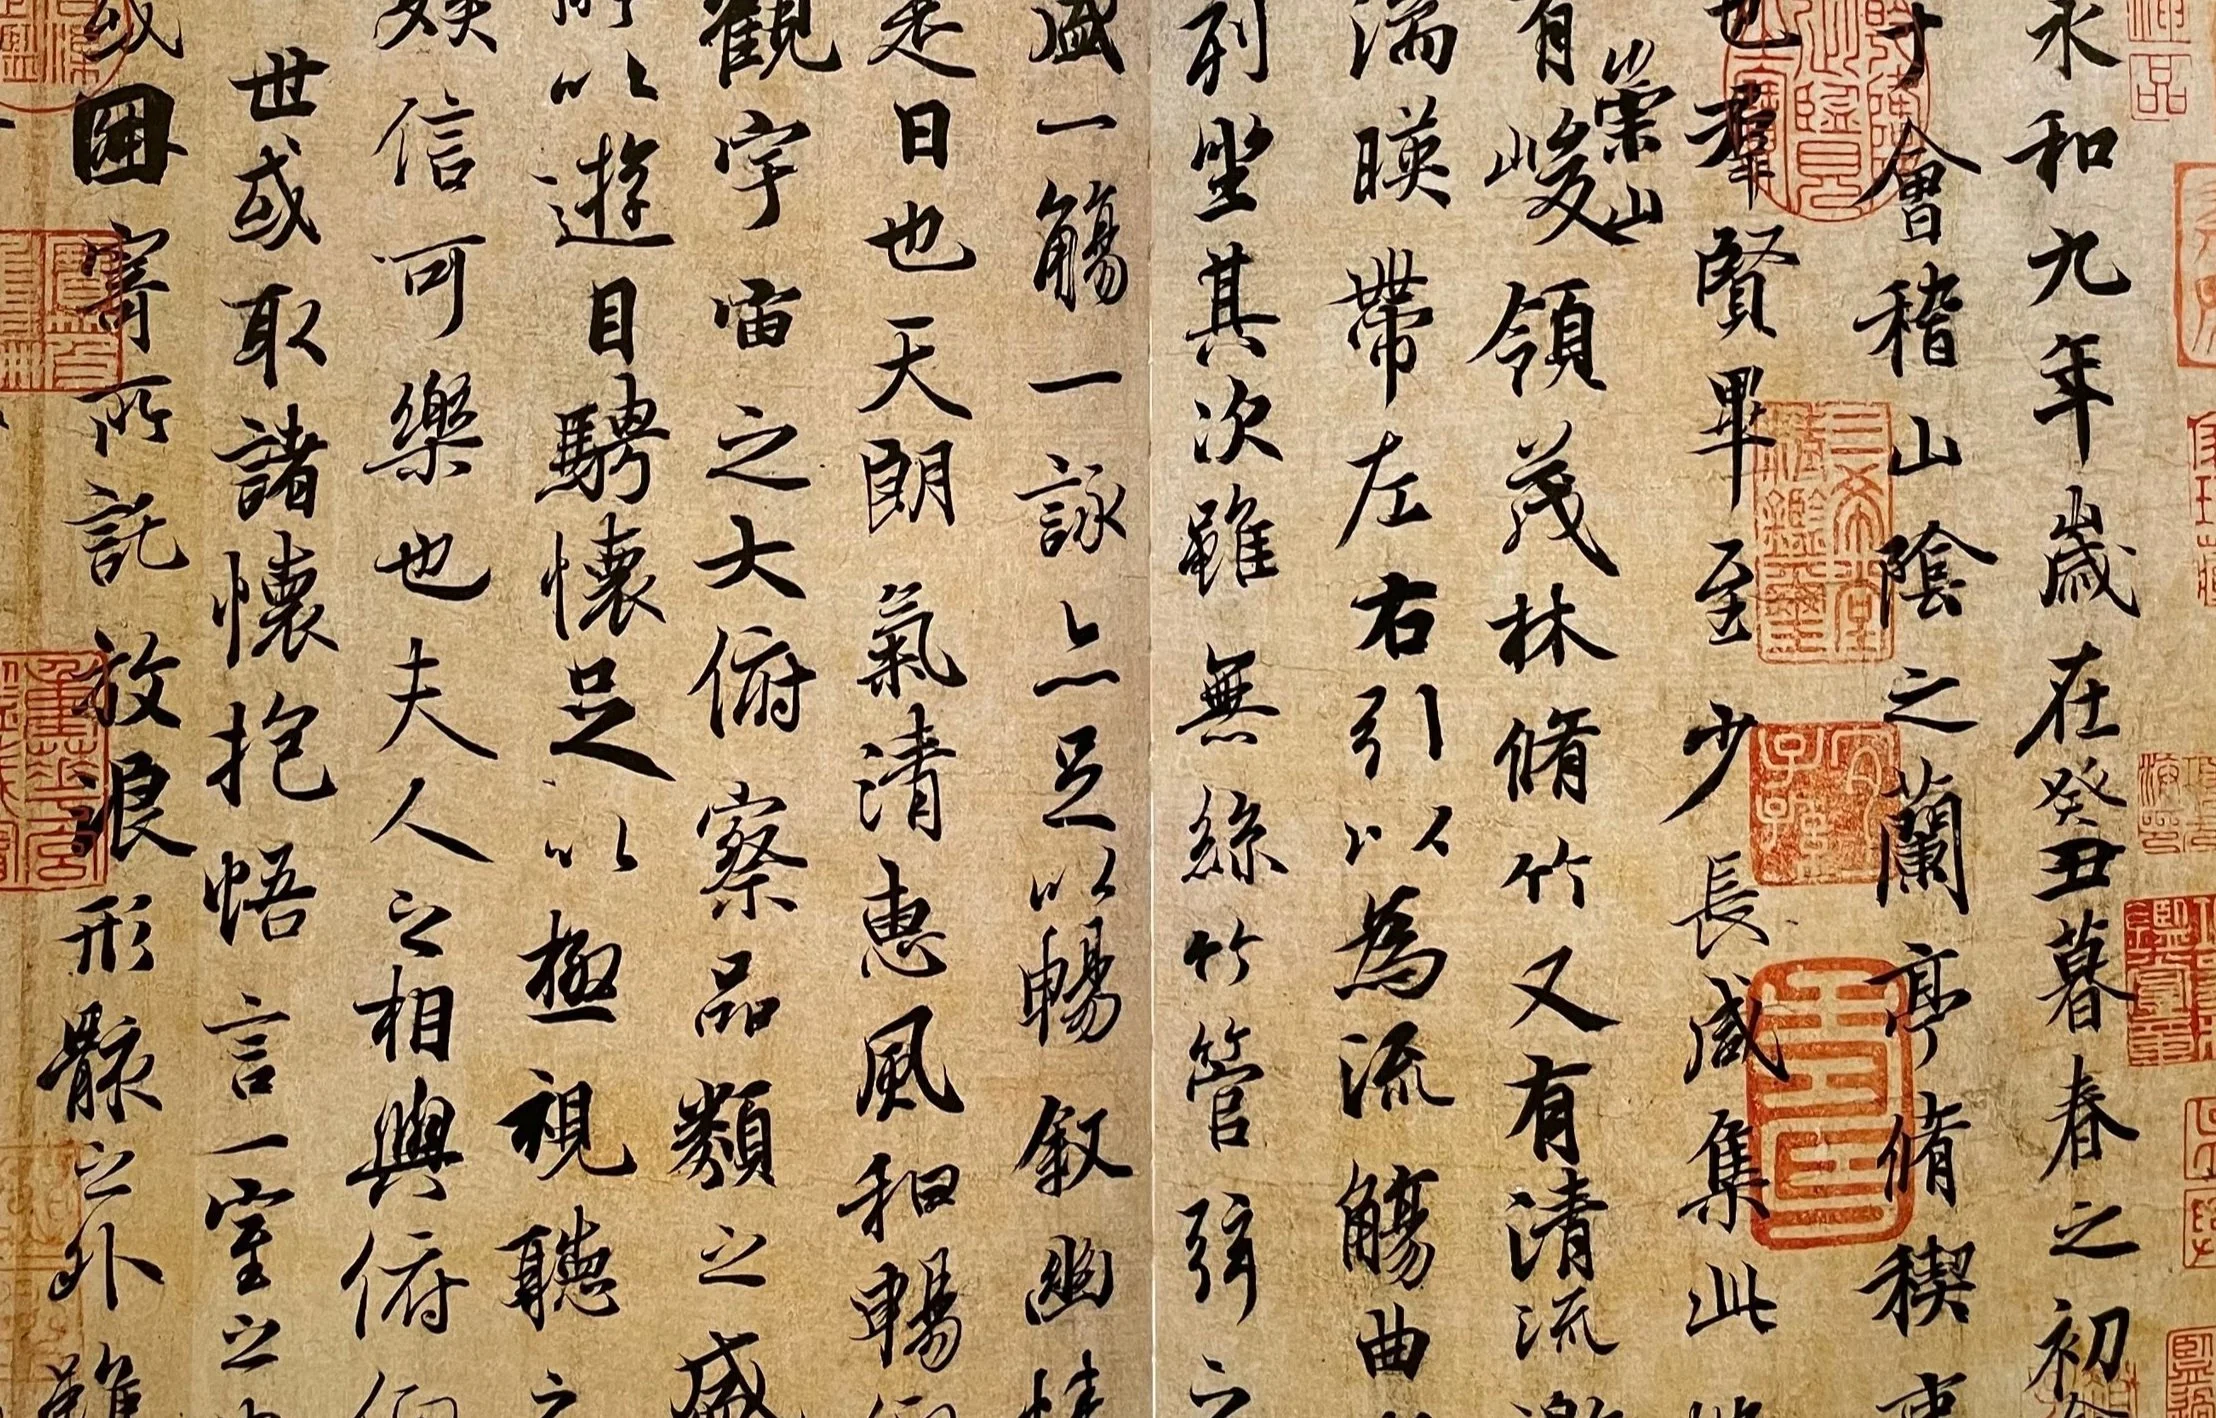 永和九年歲在癸丑暮春之初
于會稽山陰之蘭亭脩稧事
也羣賢畢至少長咸集此
有崇山峻領茂林脩竹又有清流
湍暎帶左右引以為流觴曲
列坐其次雖無絲竹管弦之
盛一觴一詠亦足以暢叙幽情
是日也天朗氣清惠風和暢
觀宇宙之大俯察品類之盛
所以遊目騁懷足以極視聽之
娛信可樂也夫人之相與俯仰
世或取諸懷抱悟言一室之
或因寄所託放浪形骸之外雖